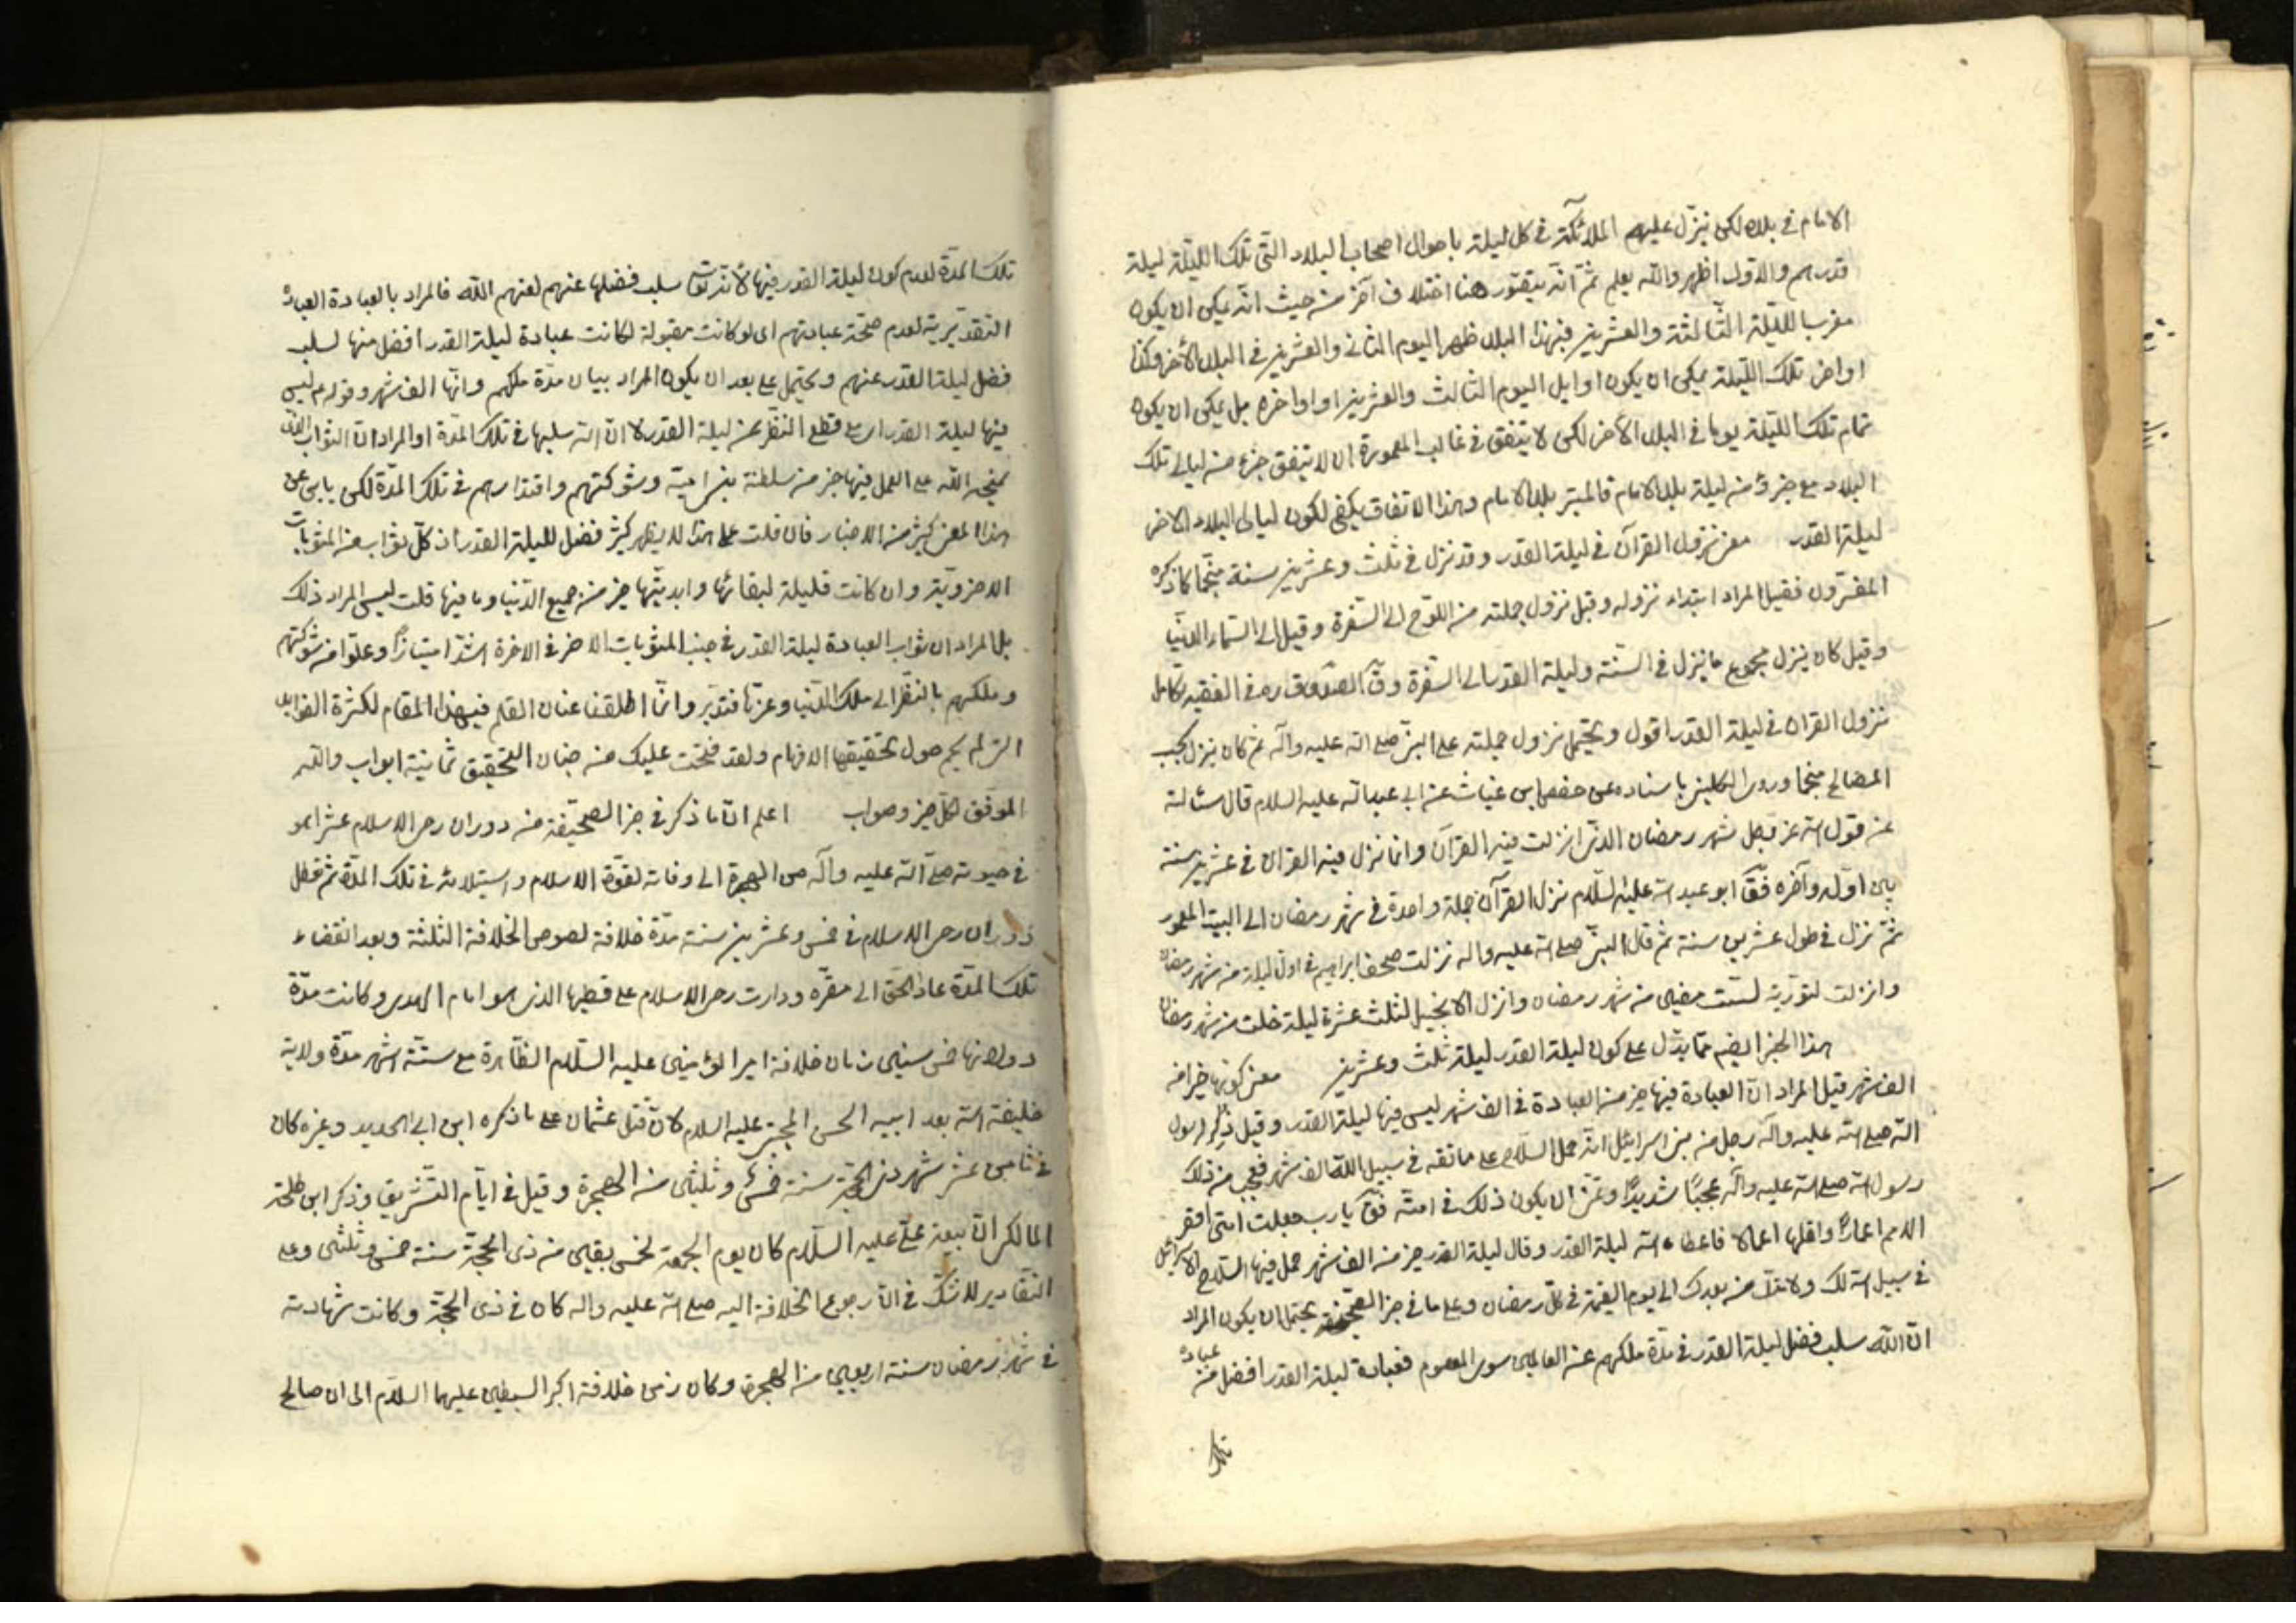 الامام في بلده لكن ينزل عليهم الملائكة في كل ليلة باحوال اصحاب البلاد التي تلك الليلة ليلة
قدرهم والاول اظهر والله يعلم ثم انه يتصور هنا اختلاف آخر من حيث انه يمكن ان يكون
مغرب الليلة الثالثة والعشرين فبهذا البلد ظهر اليوم الثاني والعشرين في البلد الأخر وكذا
اواخر تلك الليلة يمكن ان يكون اوايل اليوم الثالث والعشرين او اواخره بل يمكن ان يكون
تمام تلك الليلة يوما في البلد الأخر لكن لا يتفق في غالب المعمورة ان لا يتفق جزء من ليالي تلك
البلاد مع جزؤ من ليلة بلد الامام فالمعتبر بلد الامام وهذا الاتفاق يكفي لكون ليالي البلاد الاخر
ليلة القدر معنى نزول القرآن في ليلة القدر وقد نزل في ثلث وعشرين سنة منجما كما ذكره
المفسرون فقيل المراد ابتداء نزوله وقيل نزول جملته من اللوح الى السفرة وقيل الى السماء الدنيا
وقيل كان ينزل مجموع ما ينزل في السنة وليلة القدر الى السفرة وق الصدوق ره في الفقيه تكامل
نزول القران في ليلة القدر اقول ويحتمل نزول جملته على النبي صلى الله عليه وآله ثم كان ينزل بحسب
المصالح منجما وروى الكليني باسناده عن حفص ابن غياث عن ابي عبدالله عليه السلام قال سئالته
عن قول الله عز وجل شهر رمضان الذي انزلت فيه القرآن وانما نزل فيه القران في عشرين سنة
بين اوله وآخره فق ابو عبد الله عليه السلام نزل القرآن جملة واحدة في شهر رمضان الى البيت المعمور
ثم نزل في طول عشرين سنة ثم قال النبي صلى الله عليه واله نزلت صحف ابراهيم في اول ليلة من شهر رمضان
وانزلت لتورية لست مضين من شهر رمضان وانزل الانجيل لثلث عشرة ليلة خلت من شهر رمضان
هذا الخبر ايضم مما يدل على كون ليلة القدر ليلة ثلث وعشرين معنى كونها خيرا من
الف شهر قيل المراد ان العبادة فيها خير من العبادة في الف شهر ليس فيها ليلة القدر وقيل ذكر لرسول
الله صلى الله عليه وآله رجل من بني اسرائيل انه حمل السلاح على عاتقه في سبيل الله الف شهر فعجب من ذلك
رسول الله صلى الله عليه وآله عجبا شديدا وتمنى ان يكون ذلك في امته فق يا رب جعلت امتي اقصر
الامم اعمارا واقلها اعمالا فاعطاه الله ليلة القدر وقال ليلة القدر خير من الف شهر حمل فيها السلاح الاسرائيلي
في سبيل الله لك ولامتك من بعدك الى يوم القيمة في كل رمضان وعلى ما في خبر الصحيفة يحتمل ان يكون المراد
ان الله سلب فضل ليلة القدر في مدة ملكهم عن العالمين سوى المعصوم فعبادة ليلة القدر افضل من عبادة
تلك
تلك المدة لعدم كون ليلة القدر فيها لأنه تع سلب فضلها عنهم لعنهم الله فالمراد بالعبادة العبادة
التقديرية لعدم صحة عبادتهم اي لو كانت مقبولة لكانت عبادة ليلة القدر افضل منها لسلب
فضل ليلة القدر عنهم ويحتمل على بعد ان يكون المراد بيان مدة ملكهم وانها الف شهر وقوله ع ليس
فيها ليلة القدر اي مع قطع النظر عن ليلة القدر لا ان الله سلبها في تلك المدة او المراد ان الثواب الذي
يمنحه الله على العمل فيها خير من سلطنة بني امية وشوكتهم واقتدارهم في تلك المدة لكن يابى عن
هذا المعنى كثير من الاخبار فان قلت على هذا لا يظهر كثير فضل لليلة القدر اذ كل ثواب من المثوبات
الاخروية وان كانت قليلة لبقائها وابديتها خير من جميع الدنيا وما فيها قلت ليس المراد ذلك
بل المراد ان ثواب العبادة ليلة القدر في جنب المثوبات الاخر في الاخرة اشد امتيازا وعلوا من شوكتهم
وملكهم بالنظر الى ملك الدنيا وعزها فتدبر وانما اطلقنا عنان القلم فيهذا المقام لكثرة الفوايد
التي لم يحم حول تحقيقها الافهام ولقد فتحت عليك من جنان التحقيق ثمانية ابواب والله
الموفق لكل خير وصواب اعلم ان ما ذكر في خبر الصحيفة من دوران رحى الاسلام عشرا هو
في حيوته صلى الله عليه وآله من الهجرة الى وفاته لقوة الاسلام واستيلائه في تلك المدة ثم تعطل
دوران رحى الاسلام في خمس وعشرين سنة مدة خلافة لصوص الخلافة الثلثة وبعد انقضاء
تلك المدة عاد الحق الى مقره ودارت رحى الاسلام على قطبها الذي هو امام الهدى وكانت مدة
دورانها خمس سنين زمان خلافة امير المؤمنين عليه السلام الظاهرة مع ستة اشهر مدة ولاية
خليفة الله بعد ابيه الحسن المجتبى عليه السلام لان قتل عثمان على ما ذكره ابن ابي الحديد وغيره كان
في ثامن عشر شهر ذي الحجة سنة خمس وثلثين من الهجرة وقيل في ايام التشريق وذكر ابن طلحة
المالكي ان بيعة علي عليه السلام كان يوم الجمعة لخمس بقين من ذي الحجة سنة خمس وثلثين وعلى
التقادير لا شك في ان رجوع الخلافة اليه صلى الله عليه واله كان في ذي الحجة وكانت شهادته
في شهر رمضان سنة اربعين من الهجرة وكان زمن خلافة اكبر السبطين عليهما السلام الى ان صالح